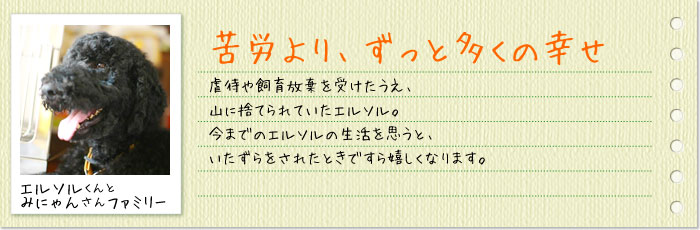 苦労より、ずっと多くの幸せ
虐待や飼育放棄を受けたうえ、
山に捨てられていたエルソル。
今までのエルソルの生活を思うと、
いたずらをされたときですら嬉しくなります。
エルソルくんと
みにゃんさんファミリー